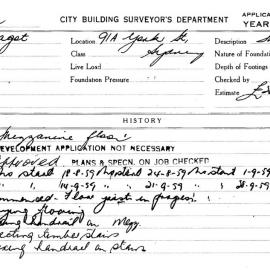 CITY BUILDING SURVEYOR'S DEPARTMENT APPLICA
YEAR
Location 91A York St, Description
Class Sydney Nature of Foundation
Live Load Depth of Footings
Foundation Pressure Checked by
Estimate
HISTORY
Mezzanine floor
DEVELOPMENT APPLICATION NOT NECESSARY
Approved PLANS & SPECN. ON JOB CHECKED
No start 18-8-59 No start 24-8-59 No start 1-9-59
" " 14-9-59 " " 21-9-59 " " 28-9-59
Floor joist in progress
Flooring
handrail on Mezz
timber stairs
handrail on stairs